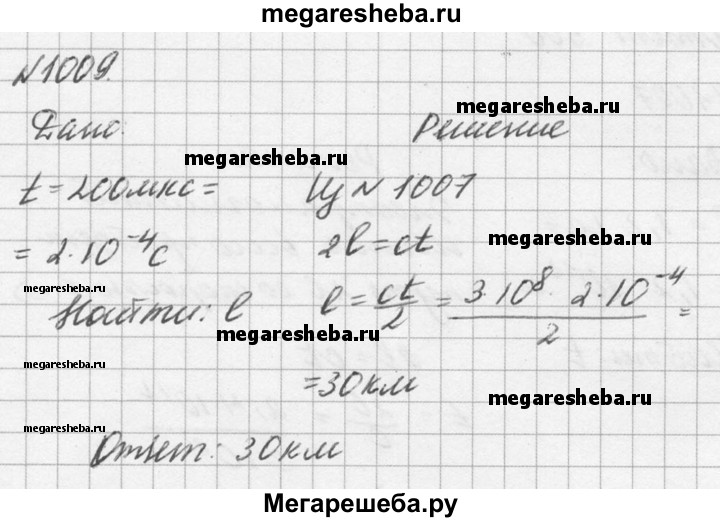 megaresheba.ru
№1009.
megaresheba.ru
Дано: Решение
megaresheba.ru
t = 200мкс = Из №1007
= 2·10⁻⁴с 2l = ct
megaresheba.ru
megaresheba.ru
Найти: l l = ct/2 = 3·10⁸·2·10⁻⁴/2 =
megaresheba.ru
megaresheba.ru
= 30км
megaresheba.ru
megaresheba.ru
Ответ: 30км
Мегарешеба.ру